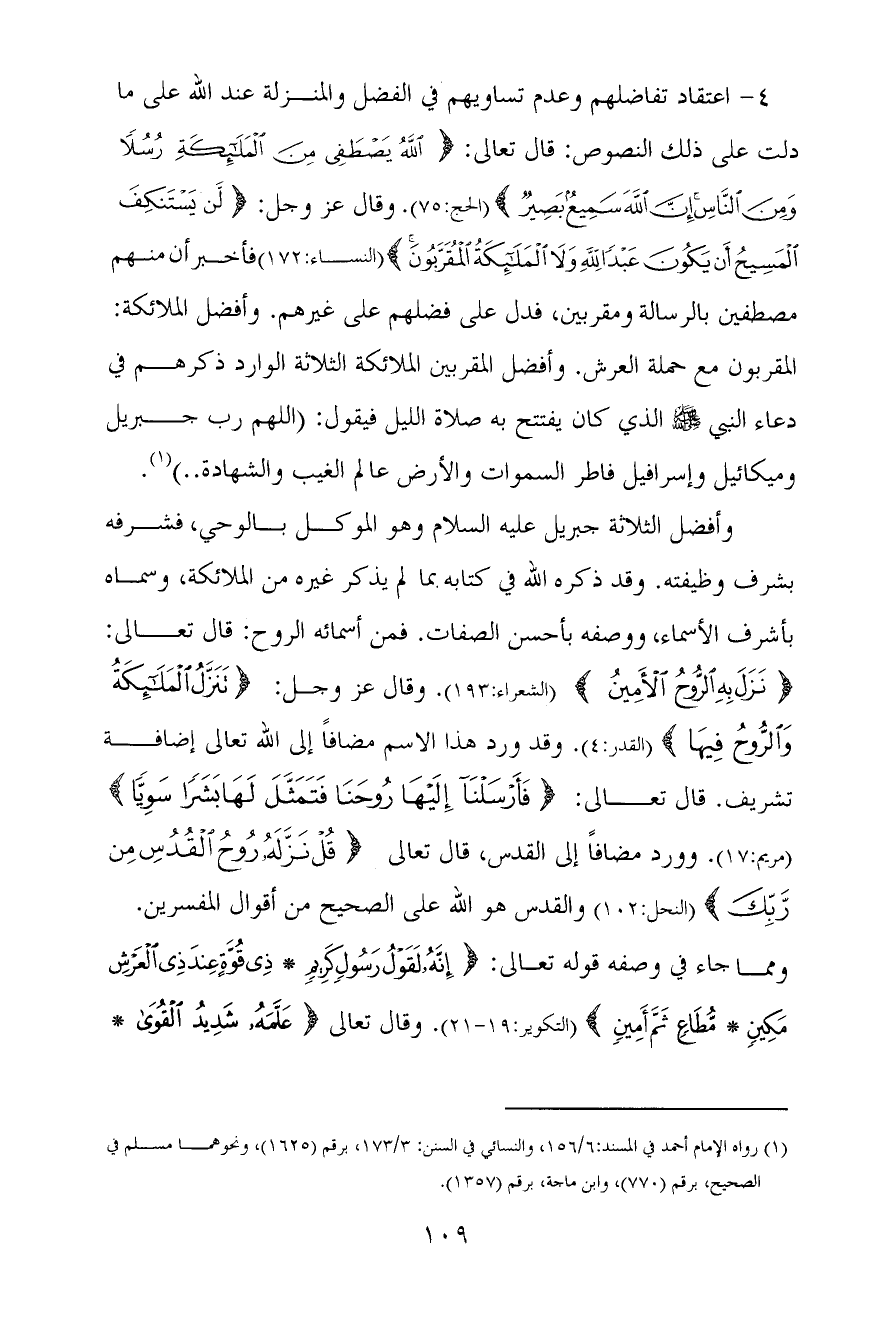 ٤- اعتقاد تفاضلهم وعدم تساويهم في الفضل والمنـزلة عند الله على ما
دلت على ذلك النصوص: قال تعالى: ﴿ ٱللَّهُ يَصْطَفِى مِنَ ٱلْمَلَٰٓئِكَةِ رُسُلًا
وَمِنَ ٱلنَّاسِ ۚ إِنَّ ٱللَّهَ سَمِيعٌۢ بَصِيرٌ ﴾ (الحج:٧٥). وقال عز وجل: ﴿ لَّن يَسْتَنكِفَ
ٱلْمَسِيحُ أَن يَكُونَ عَبْدًا لِّلَّهِ وَلَا ٱلْمَلَٰٓئِكَةُ ٱلْمُقَرَّبُونَ ۚ ﴾ (النســـاء:١٧٢) فأخـــبر أن منـــهم
مصطفين بالرسالة ومقربين، فدل على فضلهم على غيرهم. وأفضل الملائكة:
المقربون مع حملة العرش. وأفضل المقربين الملائكة الثلاثة الوارد ذكرهـــم في
دعاء النبي ﷺ الذي كان يفتتح به صلاة الليل فيقول: (اللهم رب جـــبريل
وميكائيل وإسرافيل فاطر السموات والأرض عالم الغيب والشهادة..)(١).
وأفضل الثلاثة جبريل عليه السلام وهو الموكـــل بـــالوحي، فشـــرفه
بشرف وظيفته. وقد ذكره الله في كتابه بما لم يذكر غيره من الملائكة، وسمـاه
بأشرف الأسماء، ووصفه بأحسن الصفات. فمن أسمائه الروح: قال تعـــالى:
﴿ نَزَلَ بِهِ ٱلرُّوحُ ٱلْأَمِينُ ﴾ (الشعراء:١٩٣). وقال عز وجـــل: ﴿ تَنَزَّلُ ٱلْمَلَٰٓئِكَةُ
وَٱلرُّوحُ فِيهَا ﴾ (القدر:٤). وقد ورد هذا الاسم مضافاً إلى الله تعالى إضافـــة
تشريف. قال تعـــالى: ﴿ فَأَرْسَلْنَآ إِلَيْهَا رُوحَنَا فَتَمَثَّلَ لَهَا بَشَرًا سَوِيًّا ﴾
(مريم:١٧). وورد مضافاً إلى القدس، قال تعالى ﴿ قُلْ نَزَّلَهُۥ رُوحُ ٱلْقُدُسِ مِن
رَّبِّكَ ﴾ (النحل:١٠٢) والقدس هو الله على الصحيح من أقوال المفسرين.
وممـــا جاء في وصفه قوله تعـــالى: ﴿ إِنَّهُۥ لَقَوْلُ رَسُولٍ كَرِيمٍ * ذِى قُوَّةٍ عِندَ ذِى ٱلْعَرْشِ
مَكِينٍ * مُّطَاعٍ ثَمَّ أَمِينٍ ﴾ (التكوير:١٩-٢١). وقال تعالى ﴿ عَلَّمَهُۥ شَدِيدُ ٱلْقُوَىٰ *
(١) رواه الإمام أحمد في المسند:١٥٦/٦، والنسائي في السنن: ١٧٣/٣، برقم (١٦٢٥)، ونحوهمـــا مســـلم في
الصحيح، برقم (٧٧٠)، وابن ماجة، برقم (١٣٥٧).
١٠٩